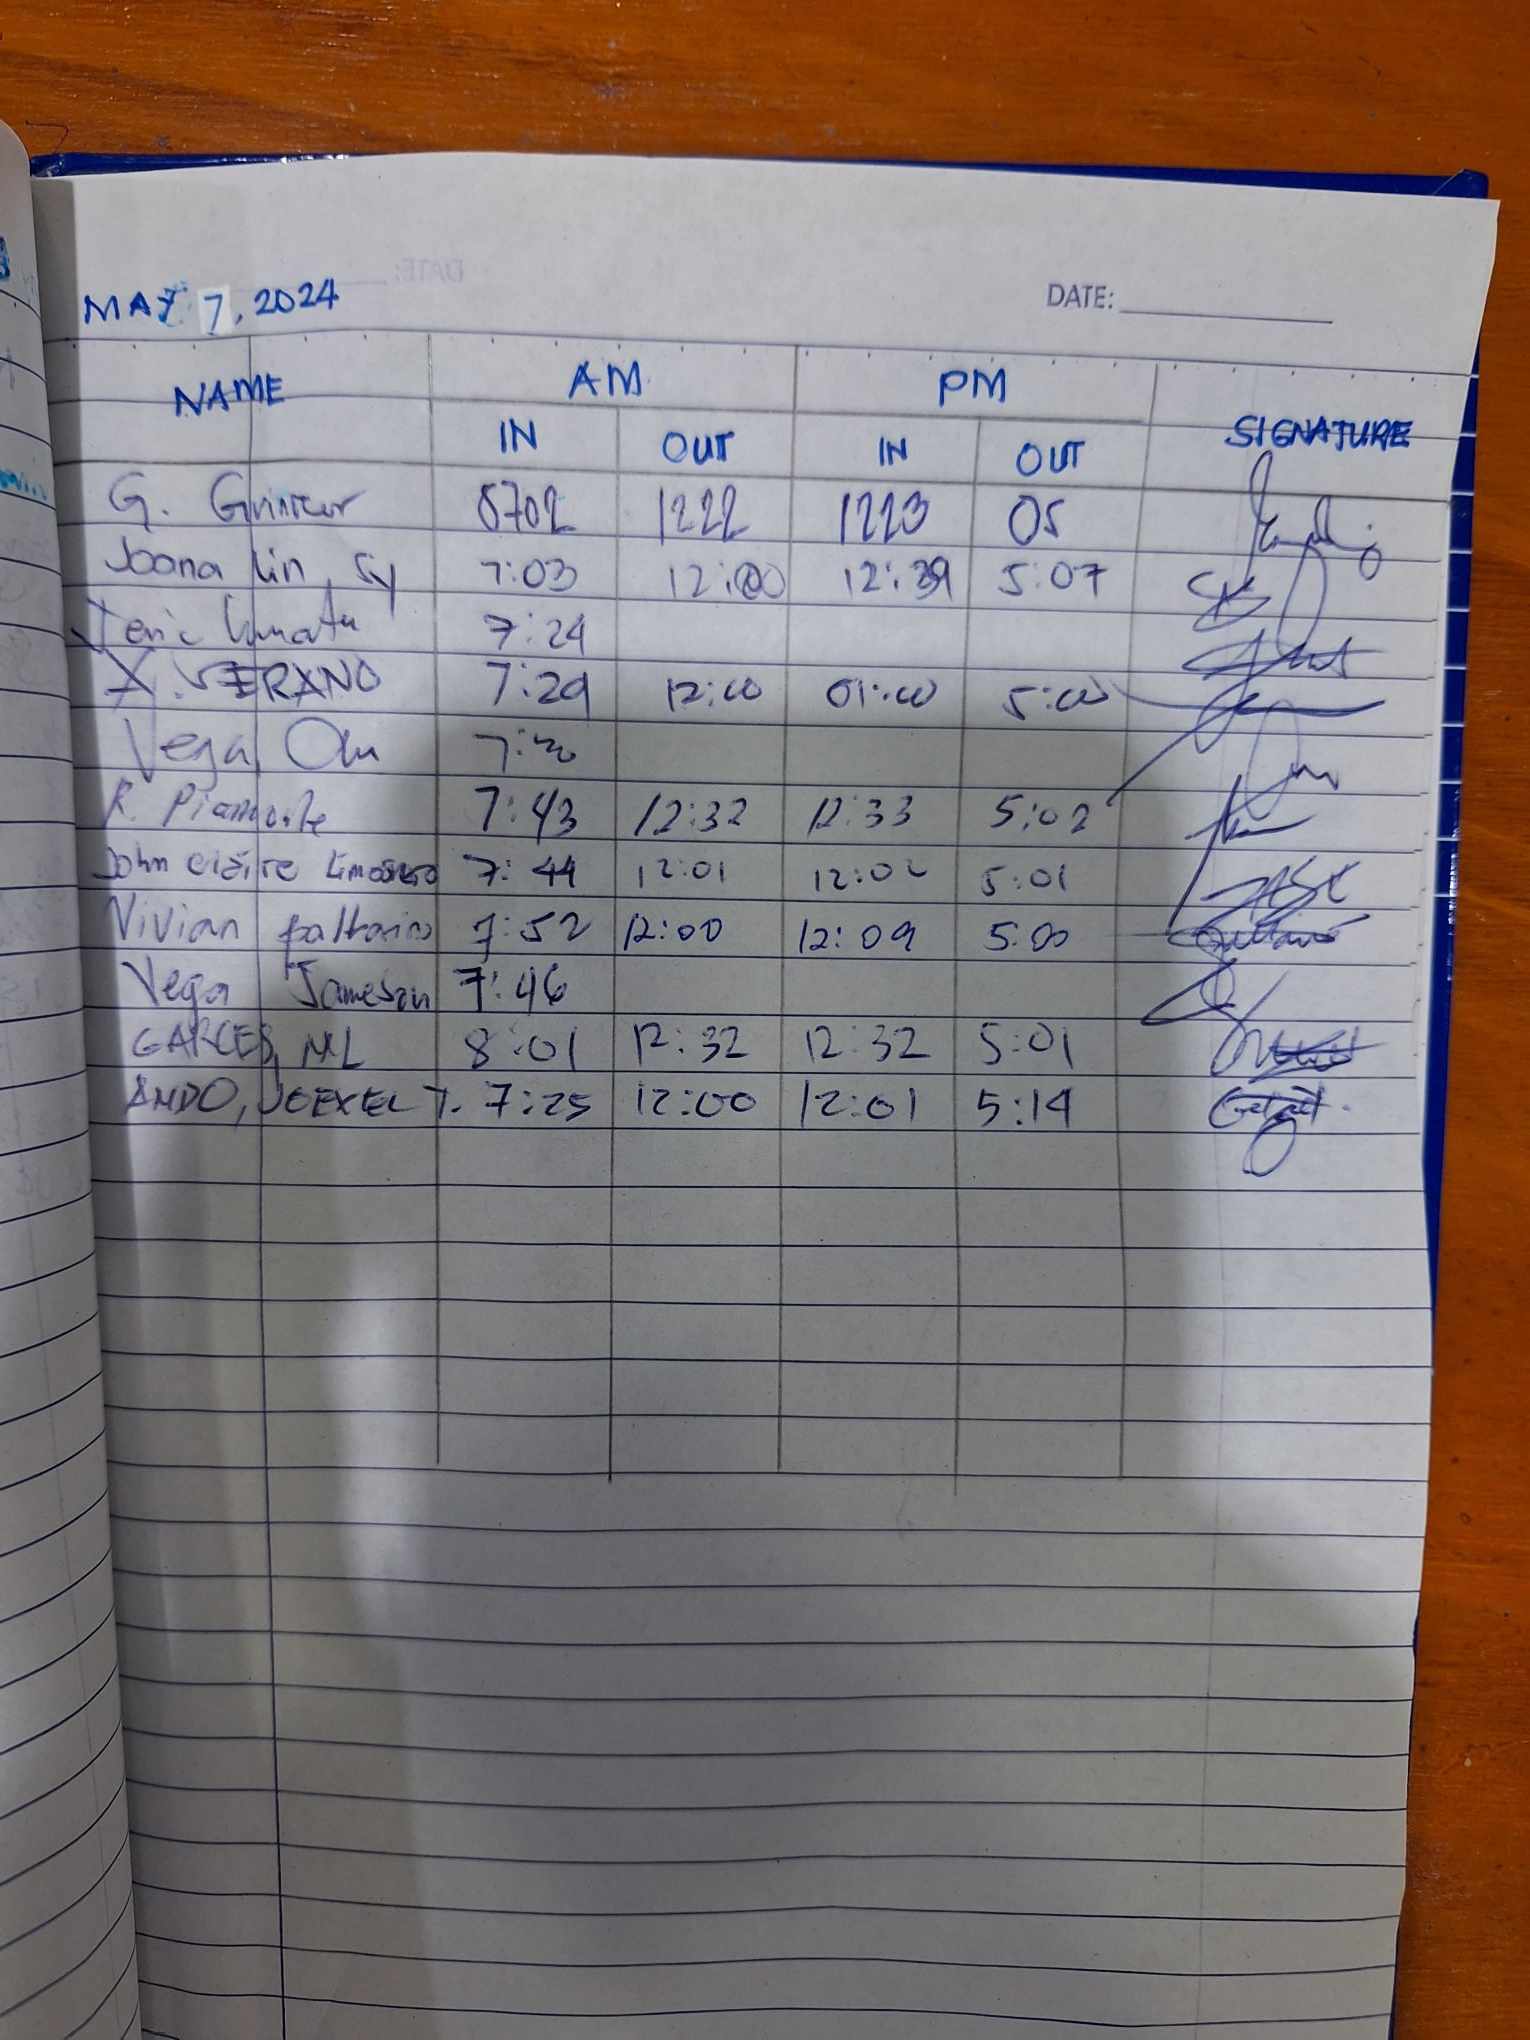 DATE: ____________
MAY 7, 2024
NAME AM PM SIGNATURE
IN OUT IN OUT
G. 0702 1222 1223 05
Joana Lin, Sy 7:03 12:00 12:39 5:07
Jeric 7:24
X. VERANO 7:29 12:00 01:00 5:00
Vega 7:30
R. Piamonte 7:43 12:32 12:33 5:02
John 7:44 12:01 12:02 5:01
Vivian 7:52 12:00 12:09 5:00
Vega Jameson 7:46
GARCES, ML 8:01 12:32 12:32 5:01
ANDO, JOEXEL T. 7:25 12:00 12:01 5:14